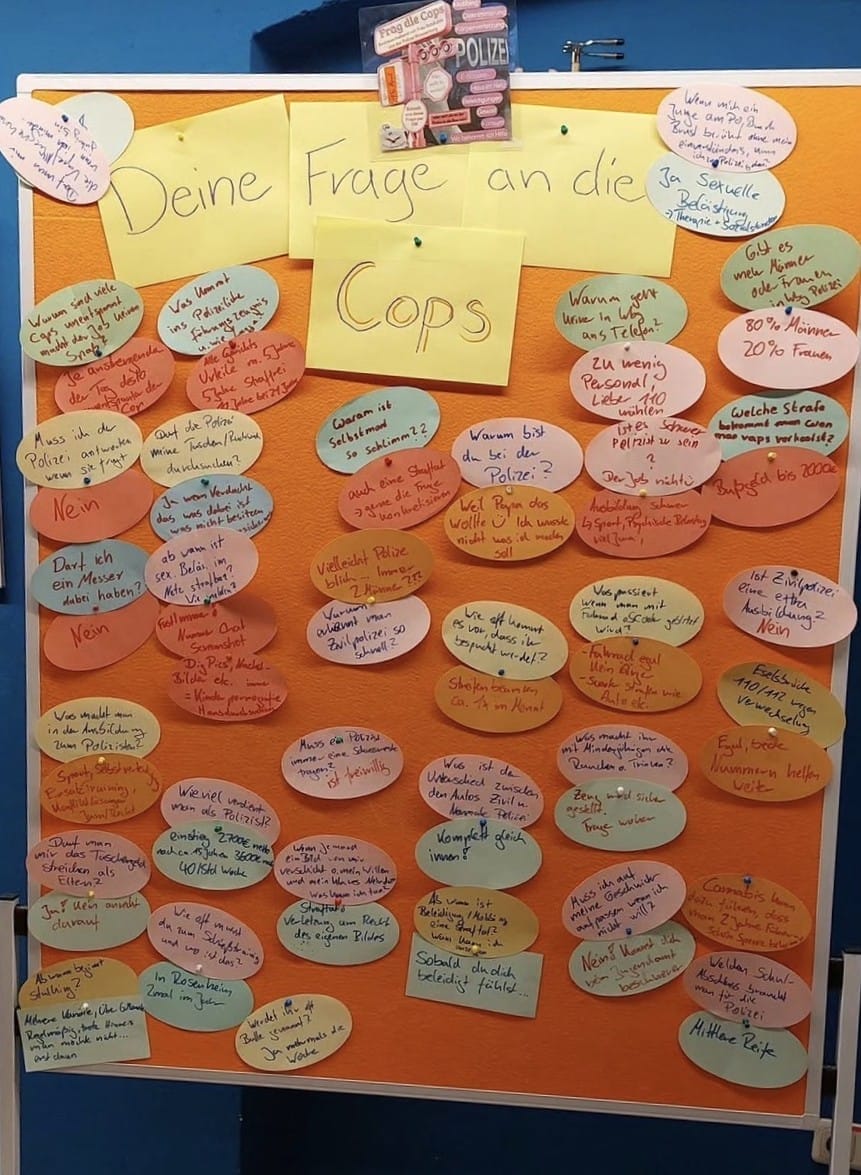 Frag die Cops
POLIZEI
Deine Frage an die
Cops
Wenn mich ein
Junge am Po, Bauch
Brust berührt ohne mein
einverständnis, kann
ich zur Polizei
Ja Sexuelle
Belästigung
→ Therapie + Sozialstunden
Warum sind viele
Cops unentspannt
macht der Job keinen
Spaß?
Je anstrengender
der Tag desto
unentspannter der
Cop
Was kommt
ins Polizeiliche
führungszeugnis
Alle Gerichts
Urteile
5 Jahre Straffrei
Muss ich der
Polizei antworten
wenn sie fragt
Nein
Darf die Polizei
meine Taschen/Rucksack
durchsuchen?
Ja wenn Verdacht
das was dabei ist
was nicht besitzen
Darf ich
ein Messer
dabei haben?
Nein
ab wann ist
sex. Beläs. im
Netz strafbar?
Fast immer!
Nummer Chat
Screenshot
DigPics, Nackt-
Bilder etc. immer
= Kinderpornografie
Hausdurchsuchung
Was macht man
in der Ausbildung
zum Polizisten?
Sport, Selbstverteid,
Einsatztraining,
Konfliktlösungen
Wie viel verdient
man als Polizist?
einstieg 2700€ netto
nach ca. 15 Jahren 3600€ netto
40/Std Woche
Darf man
mir das Taschengeld
streichen als
Eltern?
Ja! Kein anrecht
darauf
Wie oft musst
du zum Schießtraining
und wo ist das?
In Rosenheim
2mal im Jahr
Ab wann beginnt
stalking?
Mehrere Kanäle, über
Regelmäßig, trotz
man möchte nicht...
Werdet ihr oft
Bulle genannt?
Ja mehrmals die
Woche
Warum ist
Selbstmord
so schlimm??
auch eine Straftat
→ gerne die Frage
konkretisieren
Vielleicht Polize
blich... immer
2 Männer???
Warum
erkennt man
Zivilpolizei so
schnell?
Muss ein Polizist
immer eine Schussweste
tragen?
ist freiwillig
Wenn jemand
ein Bild von mir
verschickt o. mein Willen
Was kann ich tun?
Straftat
Verletzung am Recht
des eigenen Bildes
Warum bist
du bei der
Polizei?
Weil Papa das
wollte Ich wusste
nicht was ich machen
soll
Wie oft kommt
es vor, dass ihr
bespuckt werdet?
Streifenbeamten
ca. 1x im Monat
Was ist der
Unterschied zwischen
den Autos Zivil u.
Normale Polizei
Komplett gleich
innen!
Ab wann ist
Beleidigung/Mobbing
eine Straftat?
Sobald du dich
beleidigt fühlst...
Warum geht
keiner in Wbg
ans Telefon?
Zu wenig
Personal!
Lieber 110
wählen
Ist es schwer
Polizist zu sein
?
Der Job nicht
Ausbildung schwer
→ Sport, Psychische Belastung
Was passiert
wenn man mit
Fahrrad o Scooter geblitzt
wird?
- Fahrrad egal
kein
- Scooter strafen wie
Auto etc.
Was macht ihr
mit Minderjährigen die
Rauchen o. Trinken?
Zeug wird sicher
gestellt.
Frage woher
Muss ich auf
meine Geschwister
aufpassen wenn ich
nicht will?
Nein! Kannst dich
beim Jugendamt
beschweren
Gibt es
mehr Männer
oder Frauen
in Wbg Polizei
80% Männer
20% Frauen
Welche Strafe
bekommt man wenn
man vaps verkauft?
Bußgeld bis 2000€
Ist Zivilpolizei
eine extra
Ausbildung?
Nein
Eselsbrücke
110/112 wegen
Verwechslung
Egal, beide
Nummern helfen
weiter
Cannabis kann
dazu führen, dass
man 2 Jahre Führer-
schein Sperre bekommt
Welchen Schul-
Abschluss braucht
man für die
Polizei
Mittlere Reife